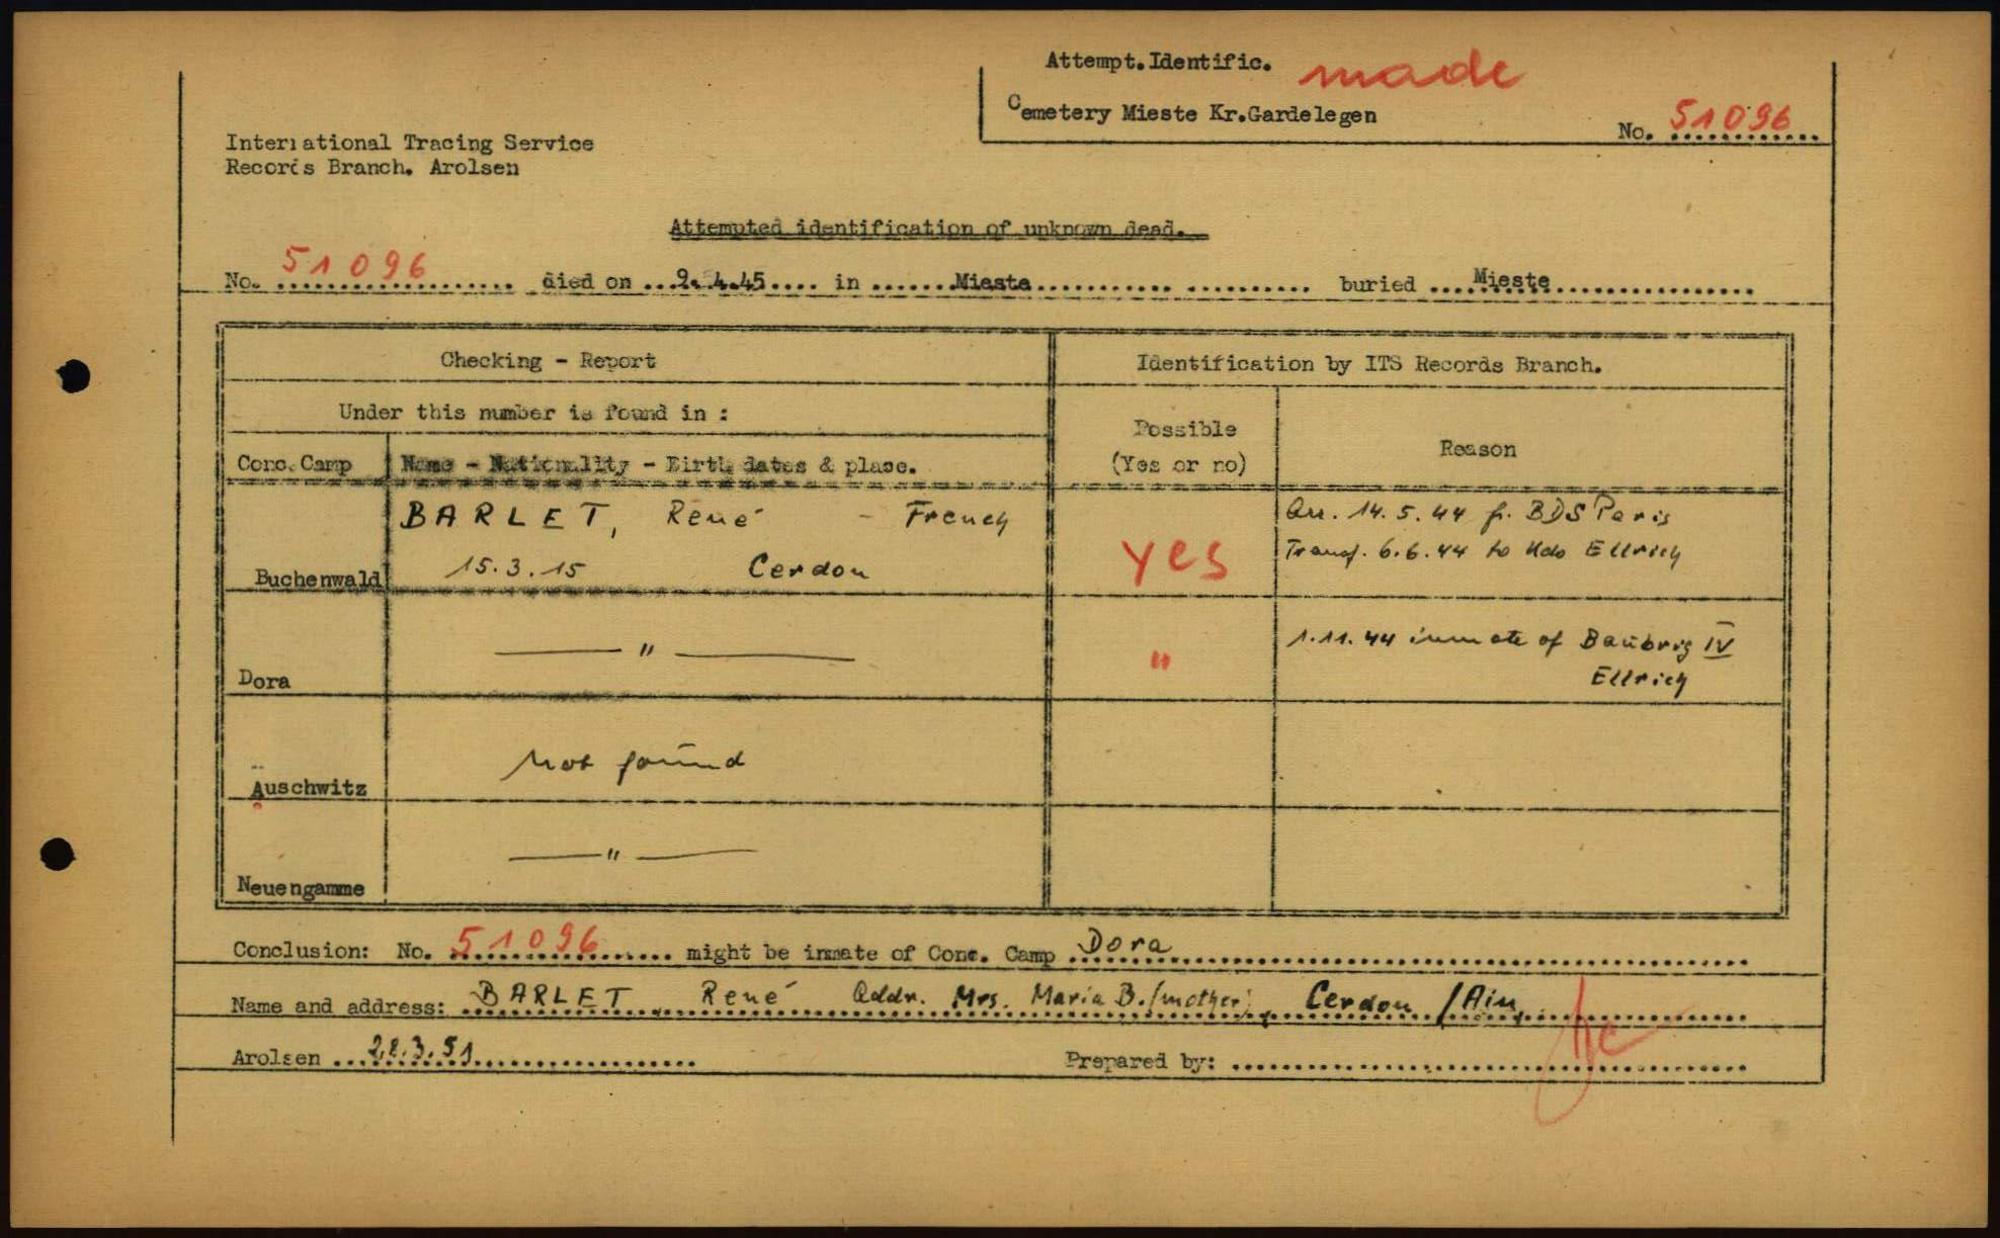 Attempt.Identific. made
Cemetery Mieste Kr.Gardelegen
No. 51096
International Tracing Service
Records Branch. Arolsen
Attempted identification of unknown dead.
No. 51096 died on 9.4.45 in Mieste buried Mieste
Checking - Report
Identification by ITS Records Branch.
Under this number is found in :
Possible
(Yes or no)
Reason
Conc.Camp
Name - Nationality - Birth dates & place.
BARLET, René - French
15.3.15 Cerdon
Buchenwald
yes
Arr. 14.5.44 fr. BDS Paris
Transf. 6.6.44 to Kdo Ellrich
Dora
— " —
"
1.11.44 inmate of Baubrig IV
Ellrich
Auschwitz
not found
Neuengamme
— " —
Conclusion: No. 51096 might be inmate of Conc. Camp Dora
Name and address: BARLET, René Addr. Mrs. Maria B. (mother), Cerdon / Ain
Arolsen 28.3.51 Prepared by: